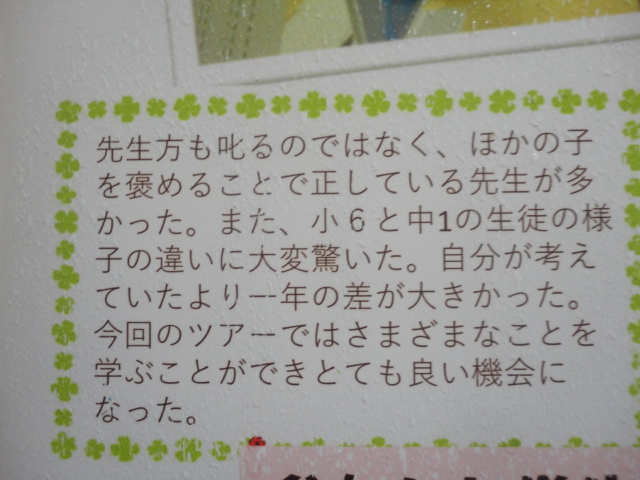 先生方も叱るのではなく、ほかの子
を褒めることで正している先生が多
かった。また、小６と中1の生徒の様
子の違いに大変驚いた。自分が考え
ていたより一年の差が大きかった。
今回のツアーではさまざまなことを
学ぶことができとても良い機会に
なった。